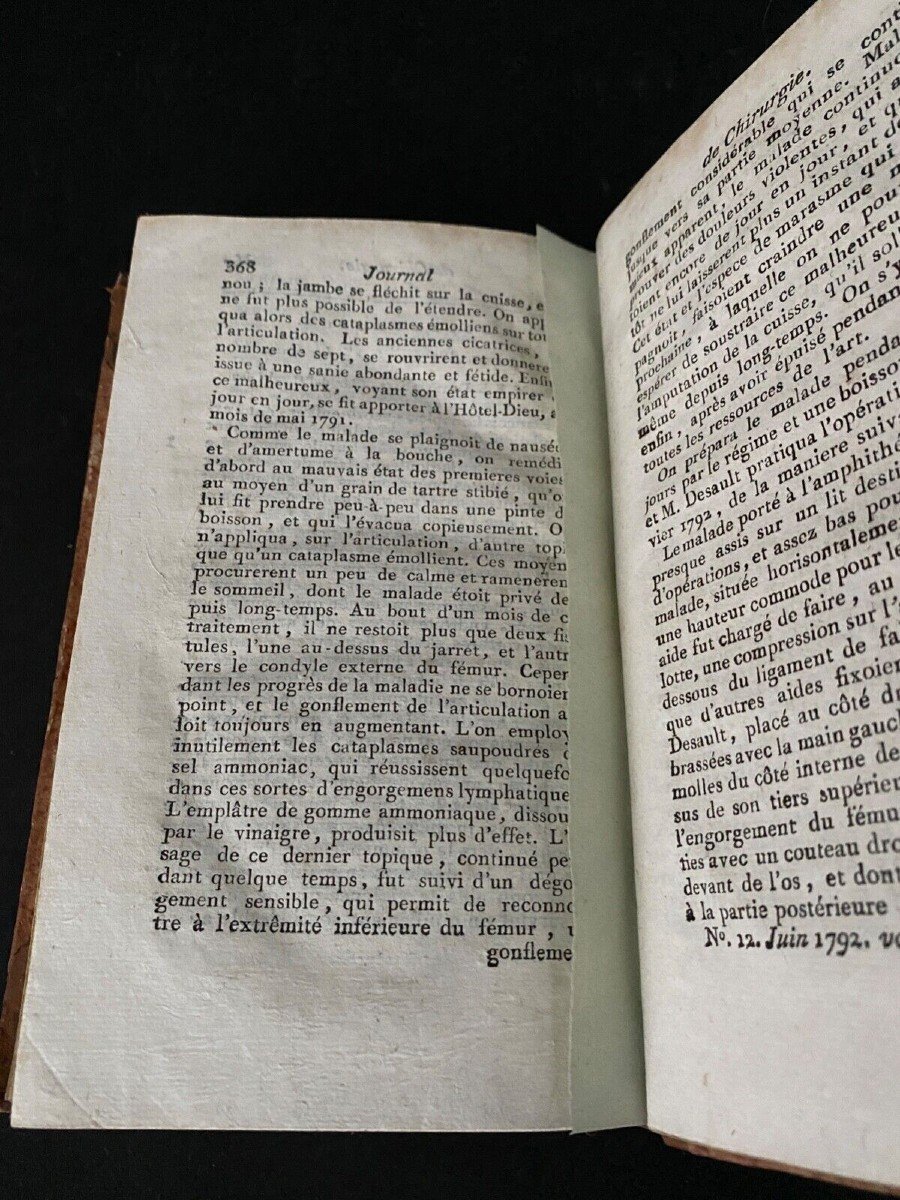 368
Journal
nou ; la jambe se fléchit sur la cuisse, e
ne fut plus possible de l'étendre. On app
qua alors des cataplasmes émolliens sur tou
l'articulation. Les anciennes cicatrices,
nombre de sept, se rouvrirent et donnere
issue à une sanie abondante et fétide. Enfi
ce malheureux, voyant son état empirer
jour en jour, se fit apporter à l'Hôtel-Dieu,
mois de mai 1791.
Comme le malade se plaignoit de nausé
et d'amertume à la bouche, on remédi
d'abord au mauvais état des premieres voies
au moyen d'un grain de tartre stibié, qu'o
lui fit prendre peu-à-peu dans une pinte d
boisson, et qui l'évacua copieusement. O
n'appliqua, sur l'articulation, d'autre topi
que qu'un cataplasme émollient. Ces moyen
procurerent un peu de calme et rameneren
le sommeil, dont le malade étoit privé de
puis long-temps. Au bout d'un mois de c
traitement, il ne restoit plus que deux fis
tules, l'une au-dessus du jarret, et l'autr
vers le condyle externe du fémur. Cepen
dant les progrès de la maladie ne se bornoien
point, et le gonflement de l'articulation a
loit toujours en augmentant. L'on employ
inutilement les cataplasmes saupoudrés
sel ammoniac, qui réussissent quelquefo
dans ces sortes d'engorgemens lymphatique
L'emplâtre de gomme ammoniaque, dissou
par le vinaigre, produisit plus d'effet. L'
sage de ce dernier topique, continué pe
dant quelque temps, fut suivi d'un dégo
gement sensible, qui permit de reconno
tre à l'extrêmité inférieure du fémur,
gonfleme
de Chirurgie.
gonflement considérable qui se cont
jusque vers sa partie moyenne. Mal
mieux apparent, le malade continuo
prouver des douleurs violentes, qui a
toient encore de jour en jour, et q
tôt ne lui laisserent plus un instant de
Cet état et l'espece de marasme qui
pagnoit, faisoient craindre une m
prochaine, à laquelle on ne pou
espérer de soustraire ce malheureu
l'amputation de la cuisse, qu'il soll
même depuis long-temps. On s'y
enfin, après avoir épuisé pendan
toutes les ressources de l'art.
On prépara le malade penda
jours par le régime et une boisso
et M. Desault pratiqua l'opérati
vier 1792, de la maniere suiva
Le malade porté à l'amphithé
presque assis sur un lit desti
d'opérations, et assez bas pou
malade, située horisontaleme
une hauteur commode pour le
aide fut chargé de faire, au
lotte, une compression sur l'a
dessous du ligament de fal
que d'autres aides fixoien
Desault, placé au côté dr
brassées avec la main gauch
molles du côté interne de
sus de son tiers supérieu
l'engorgement du fému
ties avec un couteau dro
devant de l'os, et dont
à la partie postérieure
N°. 12. Juin 1792. vo